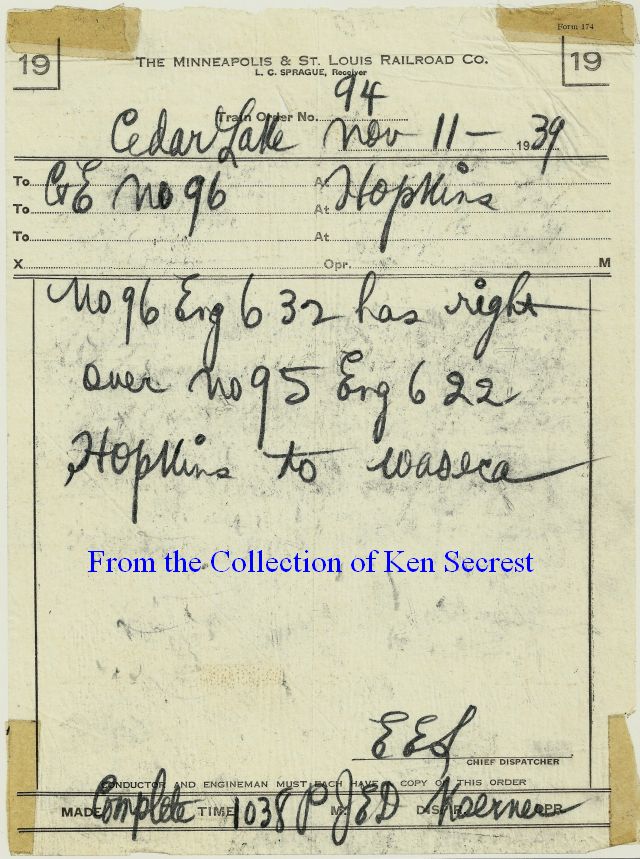 Form 174
19 THE MINNEAPOLIS & ST. LOUIS RAILROAD CO. 19
L. C. SPRAGUE, Receiver
Train Order No. 94
Cedar Lake Nov 11 - 1939
To C&E No 96 At Hopkins
To At
To At
X Opr. M
No 96 Eng 632 has right
over No 95 Eng 622
Hopkins to Waseca
From the Collection of Ken Secrest
EES
CHIEF DISPATCHER
CONDUCTOR AND ENGINEMAN MUST EACH HAVE A COPY OF THIS ORDER
MADE Complete TIME 1038 P M. JED DISPR. Koerner OPR